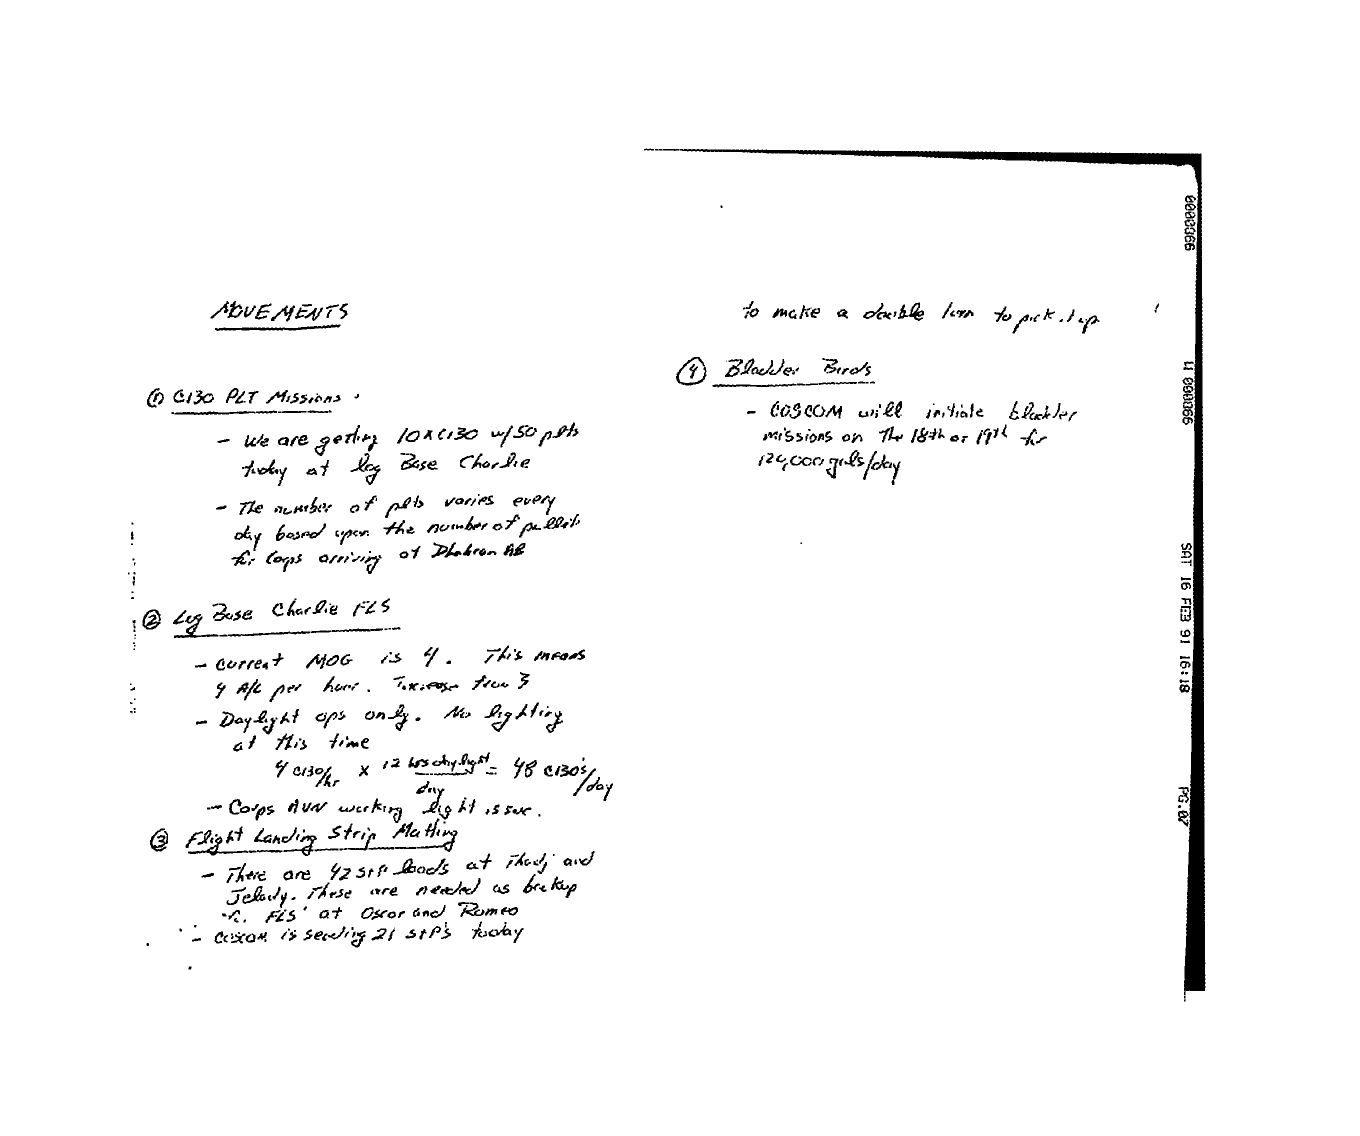 MOVEMENTS
① C130 PLT Missions
- We are getting 10 x C130 w/50 plts
today at log Base Charlie
- The number of plts varies every
day based upon the number of pallets
for Corps arriving at Dhahran AB
② Log Base Charlie FLS
- Current MOG is 4. This means
4 A/C per hour. Increase from 3
- Daylight ops only. No lighting
at this time
4 C130/hr x 12 hrs daylight/day = 48 C130's/day
- Corps AVN working light issue.
③ Flight Landing Strip Matting
- There are 42 StP loads at Thadj and
These are needed as backup
FLS' at Oscar and Romeo
- COSCOM is sending 21 StP's today
to make a double turn to pick up
④ Bladder Birds
- COSCOM will initiate bladder
missions on the 18th or 19th for
gals/day
0000066
U 000066
SAT 16 FEB 91 16:18
PG.07